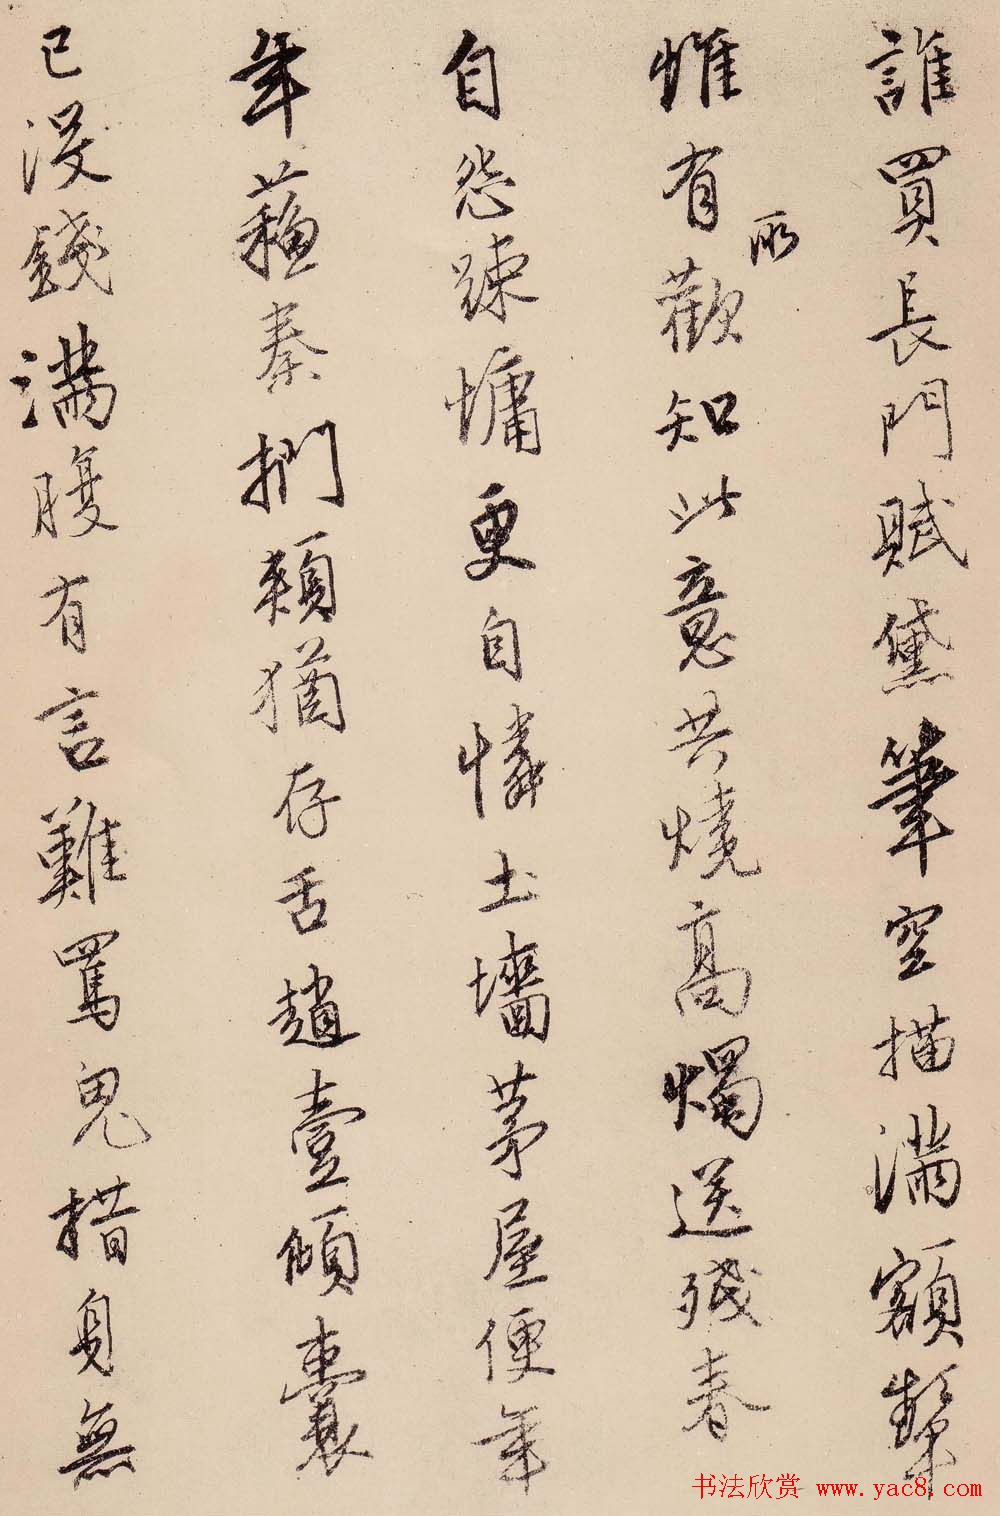 誰買長門賦黛筆空描滿額顰
惟有所歡知此意共燒高燭送殘春
自怨踈慵更自憐土墻茅屋便年
年蘓秦捫頰猶存舌趙壹傾囊
已沒錢滿腹有言難罵鬼措身無
书法欣赏 www.yac8.com